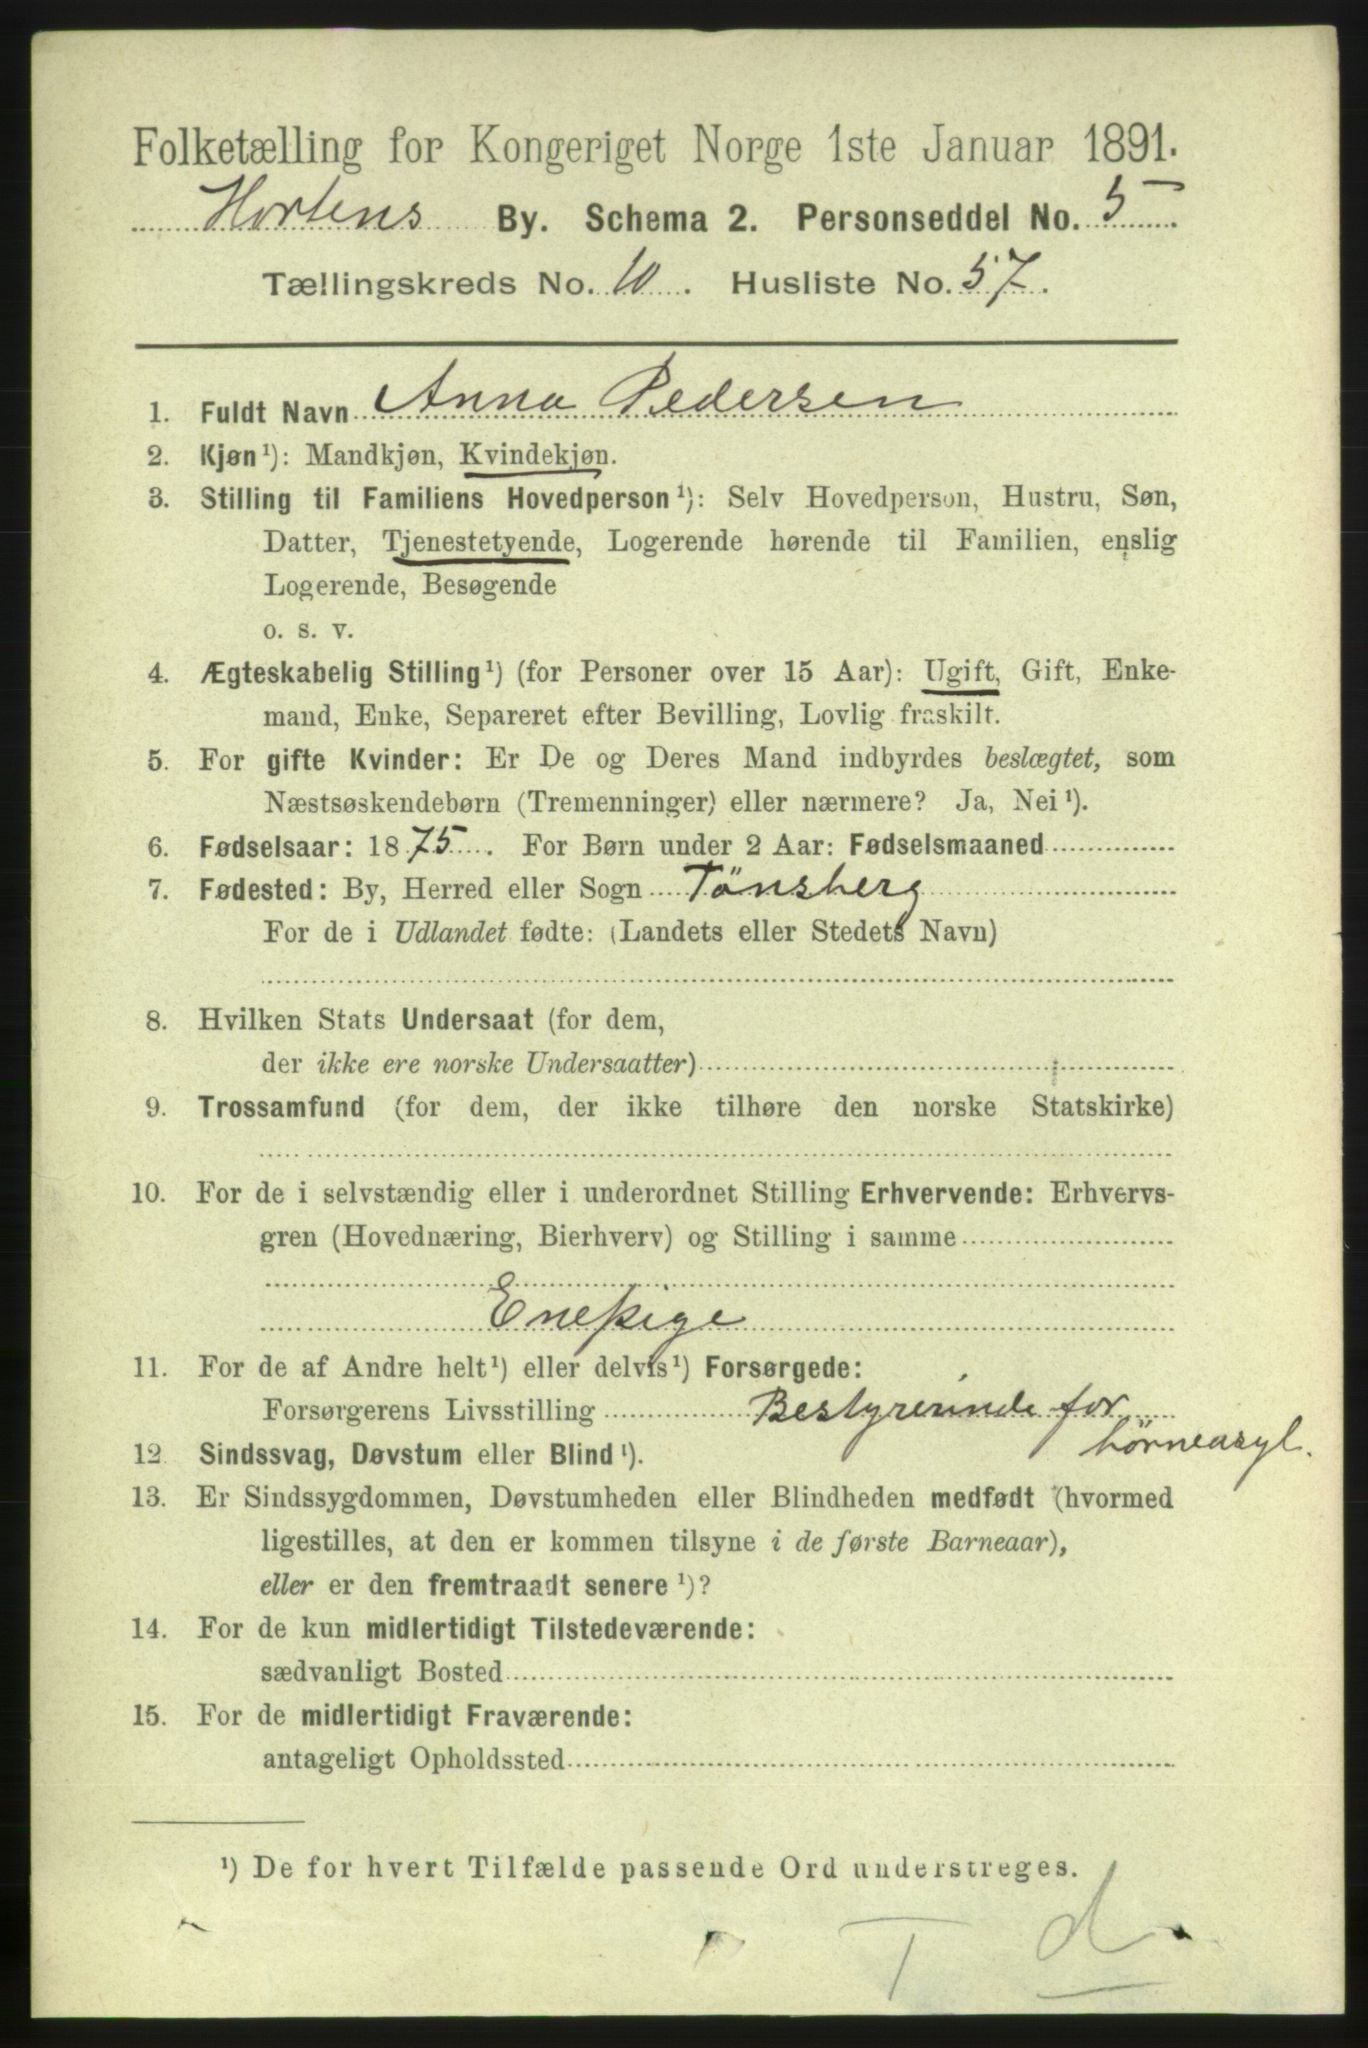 Folketælling for Kongeriget Norge 1ste Januar 1891.
Hortens By. Schema 2. Personseddel No. 5
Tællingskreds No. 10. Husliste No. 57.
1. Fuldt Navn Anna Pedersen
2. Kjøn¹): Mandkjøn, Kvindekjøn.
3. Stilling til Familiens Hovedperson¹): Selv Hovedperson, Hustru, Søn,
Datter, Tjenestetyende, Logerende hørende til Familien, enslig
Logerende, Besøgende
o. s. v.
4. Ægteskabelig Stilling¹) (for Personer over 15 Aar): Ugift, Gift, Enke-
mand, Enke, Separeret efter Bevilling, Lovlig fraskilt.
5. For gifte Kvinder: Er De og Deres Mand indbyrdes beslægtet, som
Næstsøskendebørn (Tremenninger) eller nærmere? Ja, Nei¹).
6. Fødselsaar: 1875. For Børn under 2 Aar: Fødselsmaaned
7. Fødested: By, Herred eller Sogn Tönsberg
For de i Udlandet fødte: (Landets eller Stedets Navn)
8. Hvilken Stats Undersaat (for dem,
der ikke ere norske Undersaatter)
9. Trossamfund (for dem, der ikke tilhøre den norske Statskirke)
10. For de i selvstændig eller i underordnet Stilling Erhvervende: Erhvervs-
gren (Hovednæring, Bierhverv) og Stilling i samme
Enepige
11. For de af Andre helt¹) eller delvis¹) Forsørgede:
Forsørgerens Livsstilling Bestyrerinde for
börneasyl.
12. Sindssvag, Døvstum eller Blind¹).
13. Er Sindssygdommen, Døvstumheden eller Blindheden medfødt (hvormed
ligestilles, at den er kommen tilsyne i de første Barneaar),
eller er den fremtraadt senere¹)?
14. For de kun midlertidigt Tilstedeværende:
sædvanligt Bosted
15. For de midlertidigt Fraværende:
antageligt Opholdssted
¹) De for hvert Tilfælde passende Ord understreges.
T d.